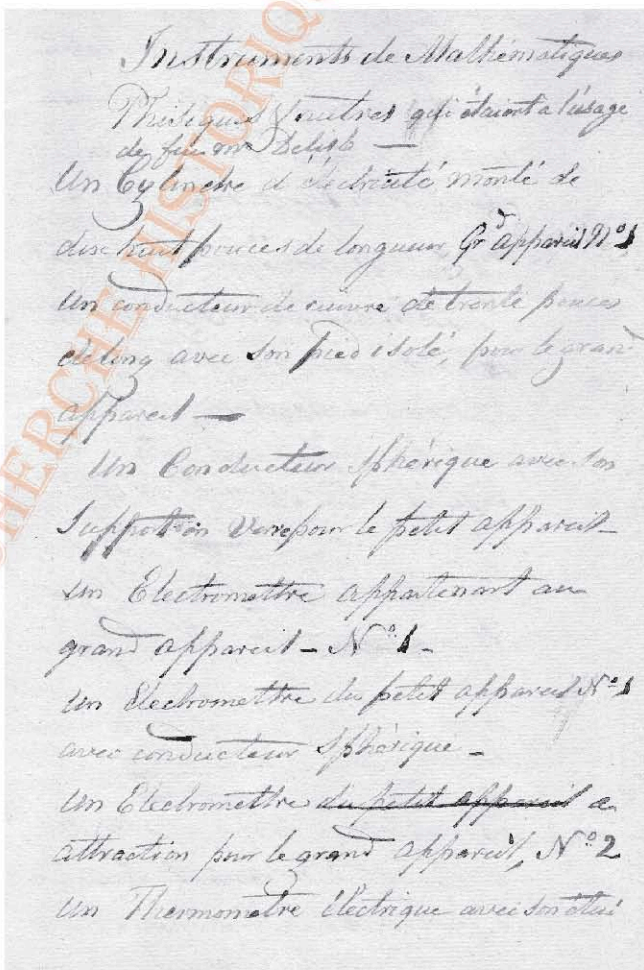 Instruments de Mathématiques
Phisiques & autres qui étaient a l'usage
de feu mr Delisle —
Un Cylindre d'électricité monté de
dix huit pouces de longueur Gr.d appareil N.o 1
un conducteur de cuivre de trente pouces
de long avec son pied isolé, pour le grand
appareil —
Un Conducteur Sphérique avec son
Support en Verre pour le petit appareil —
un Electromettre appartenant au
grand appareil — N.o 1 —
un Electromettre du petit appareil N.o 1
avec conducteur Sphérique —
un Electromettre du petit appareil a
attraction pour le grand appareil, N.o 2
un Thermometre électrique avec son étui
CHERCHE HISTORIQ